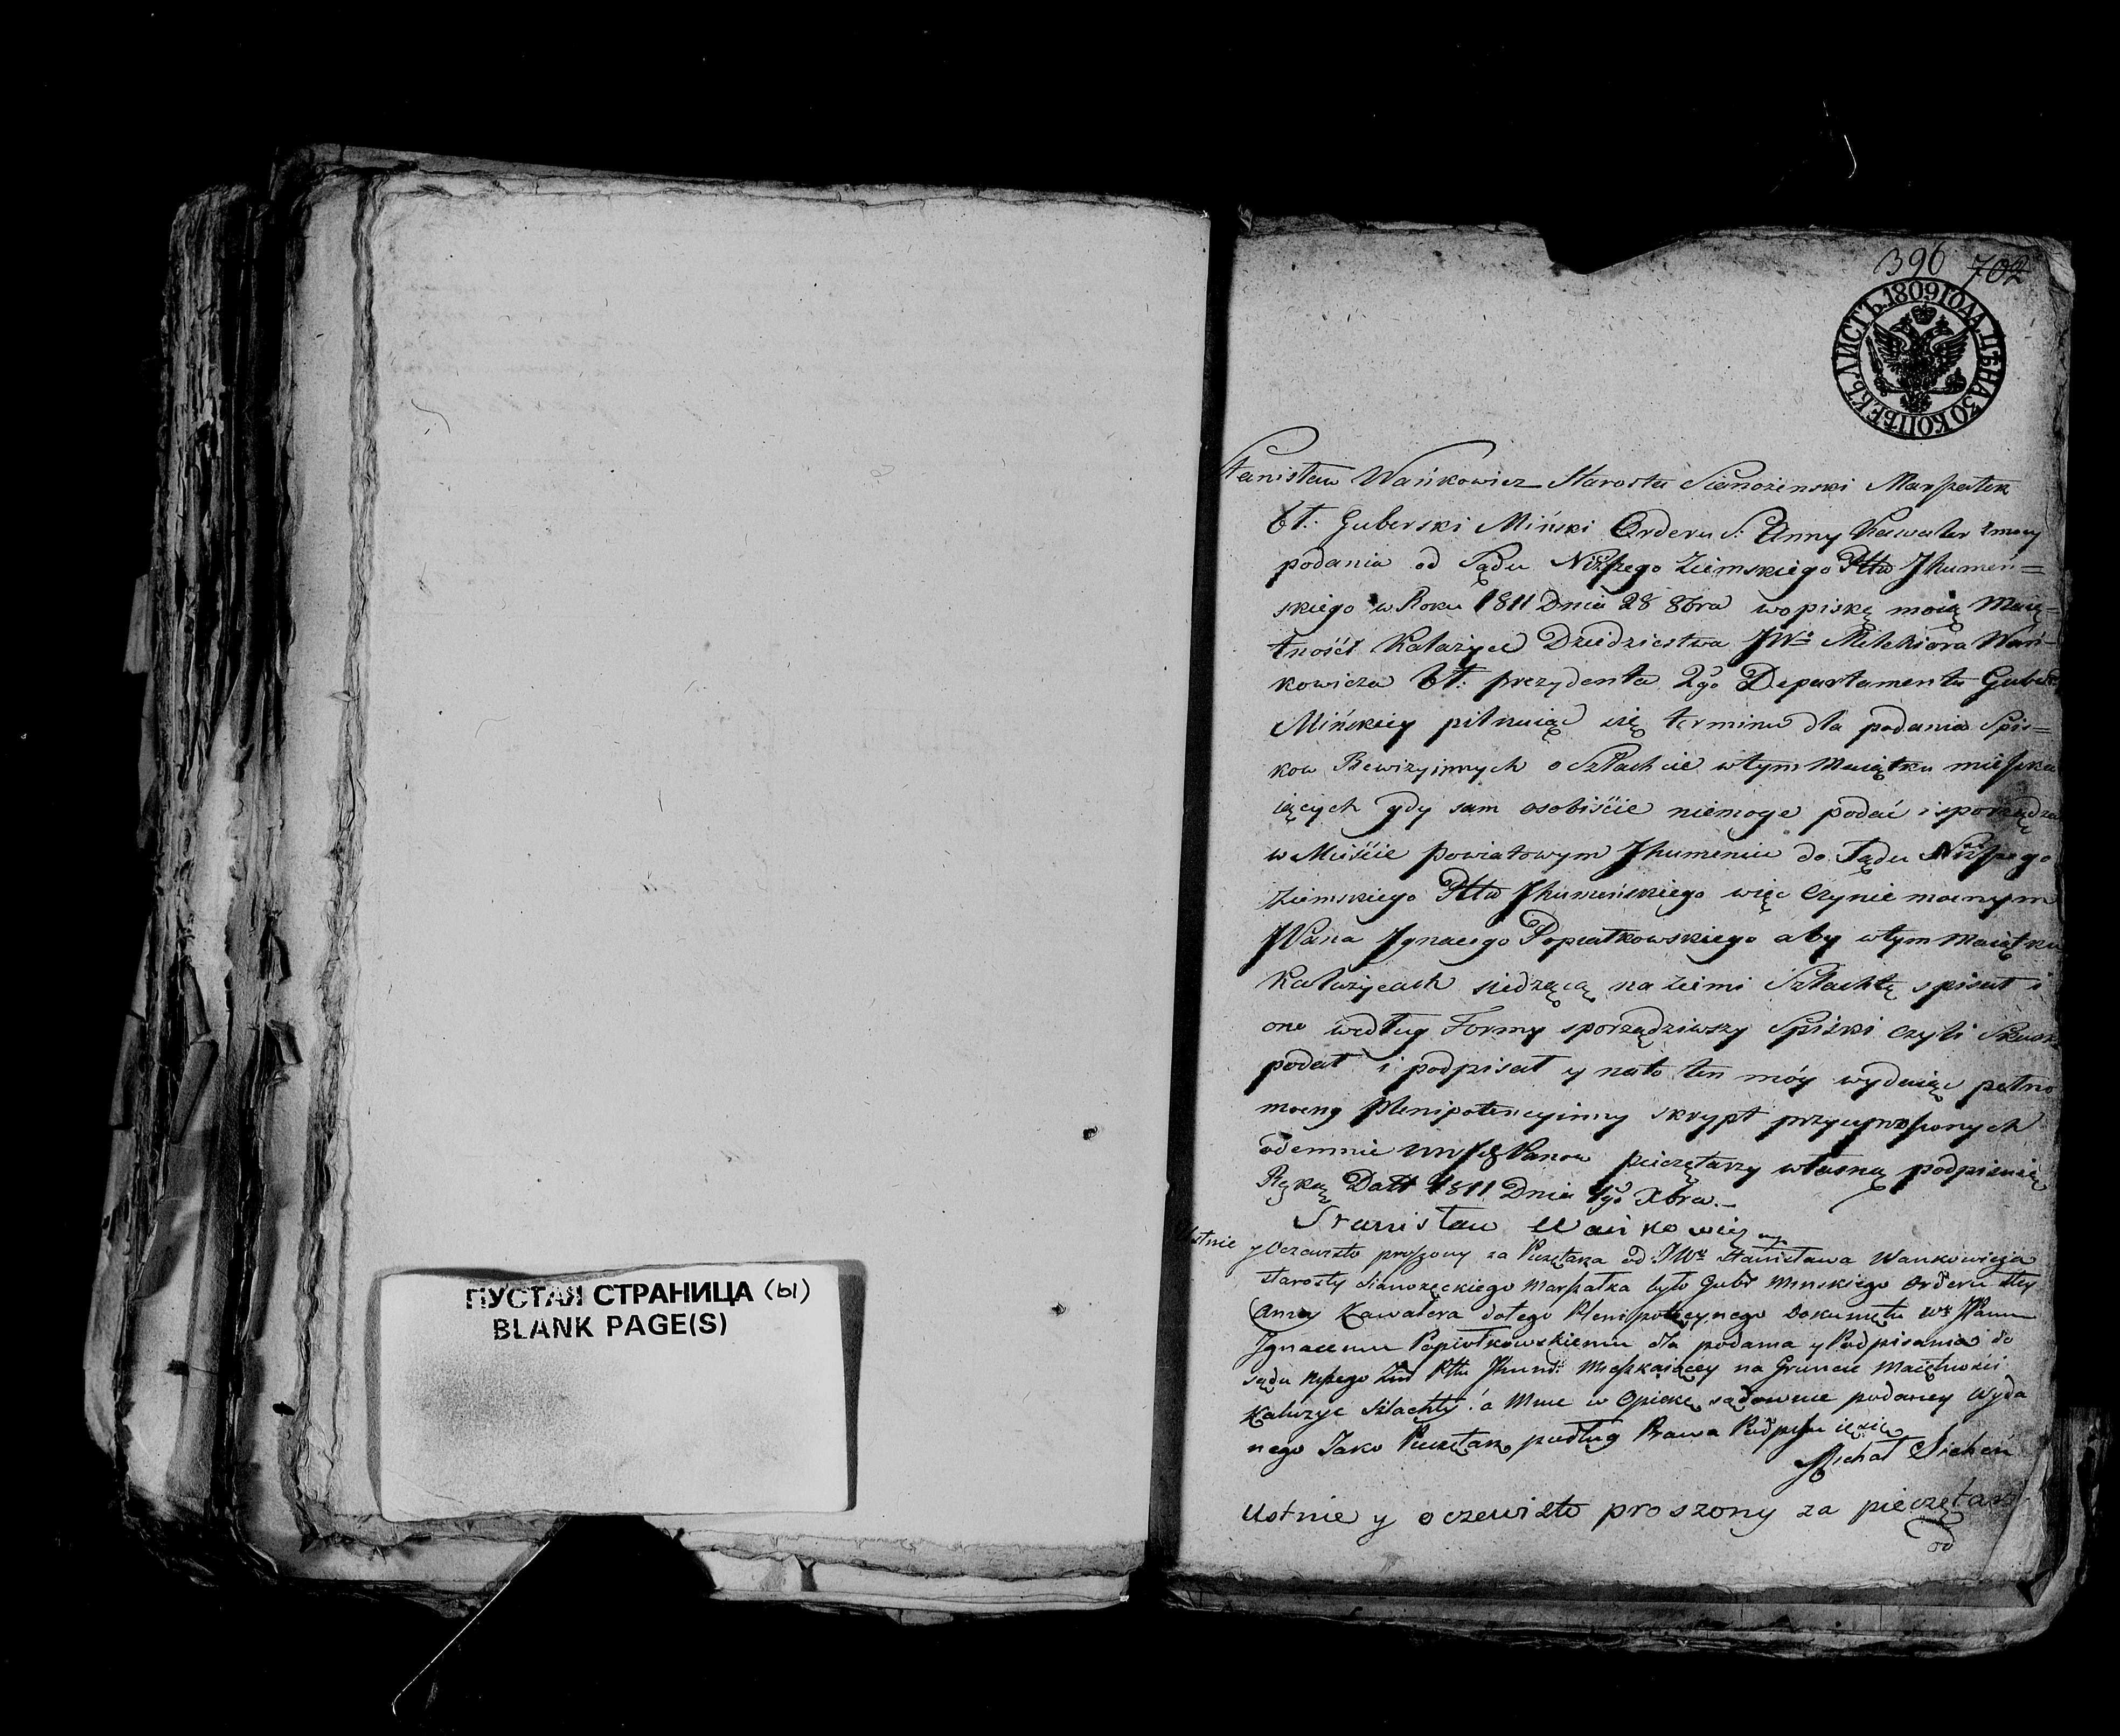 ПУСТАЯ СТРАНИЦА (ы)
BLANK PAGE(S)
396 702
ЛИСТЪ. 1809 ГОДА. ЦѢНА 30 КОПѢЕКЪ.
Stanisław Wańkowicz Starosta Sianożenski Marszałek
bł: Guberski Miński Orderu S: Anny Kawaler z mocy
podania od Sądu Niższego Ziemskiego Pttu Jhumeń=
skiego w Roku 1811 Dnia 28 8bra w opiekę moią Maię=
tności Kałużyce Dziedzictwa JWo Melchiora Wań=
kowicza bł: prezydenta 2go Departamentu Guber
Mińskiey pilnuiąc się terminu dla podania Spis=
kow Rewizyinych o Szlachcie w tym Maiątku mieszka
iących gdy sam osobiście niemogę podać i
w Mieście powiatowym Jhumeniu do Sądu Niższego
Ziemskiego Pttu Jhumeńskiego więc czynie mocnym
JPana Jgnacego Popiatkowskiego aby w tym Maiątku
Kałużycach siedzącą na ziemi Szlachtę spisał i
one według Formy sporządziwszy Spiski czyli
podał i podpisał y na to ten móy wydaiąc pełno
mocny Plenipotencyinny skrypt przy uproszonych
odemnie Panow pieczętarzy własną podpisuię
Ręką Datt 1811 Dnia 1go Xbra.
Stanisław Wańkowicz mp
Ustnie y Oczewisto proszony za Pieczętarza od JWo Stanisława Wankowicza
Starosty Sianożęckiego Marszałka było Gubr Minskiego Orderu Stey
Anny Kawalera do tego Plenipotęcynego Dokumętu JPanu
Jgnacemu Popiołkowskiemu dla podania y Podpisania do
sądu niższego Zm Pttu Jhum: Mieszkaiącey na Gruncie Maiętności
Kałużyc Szlachty: a Mnie w Opiekę sądownie podaney Wyda
nego Jako Pieczętarz podług Prawa Podpisuię się
Michał Sicheń
Ustnie y oczewisto proszony za pieczętarz
od